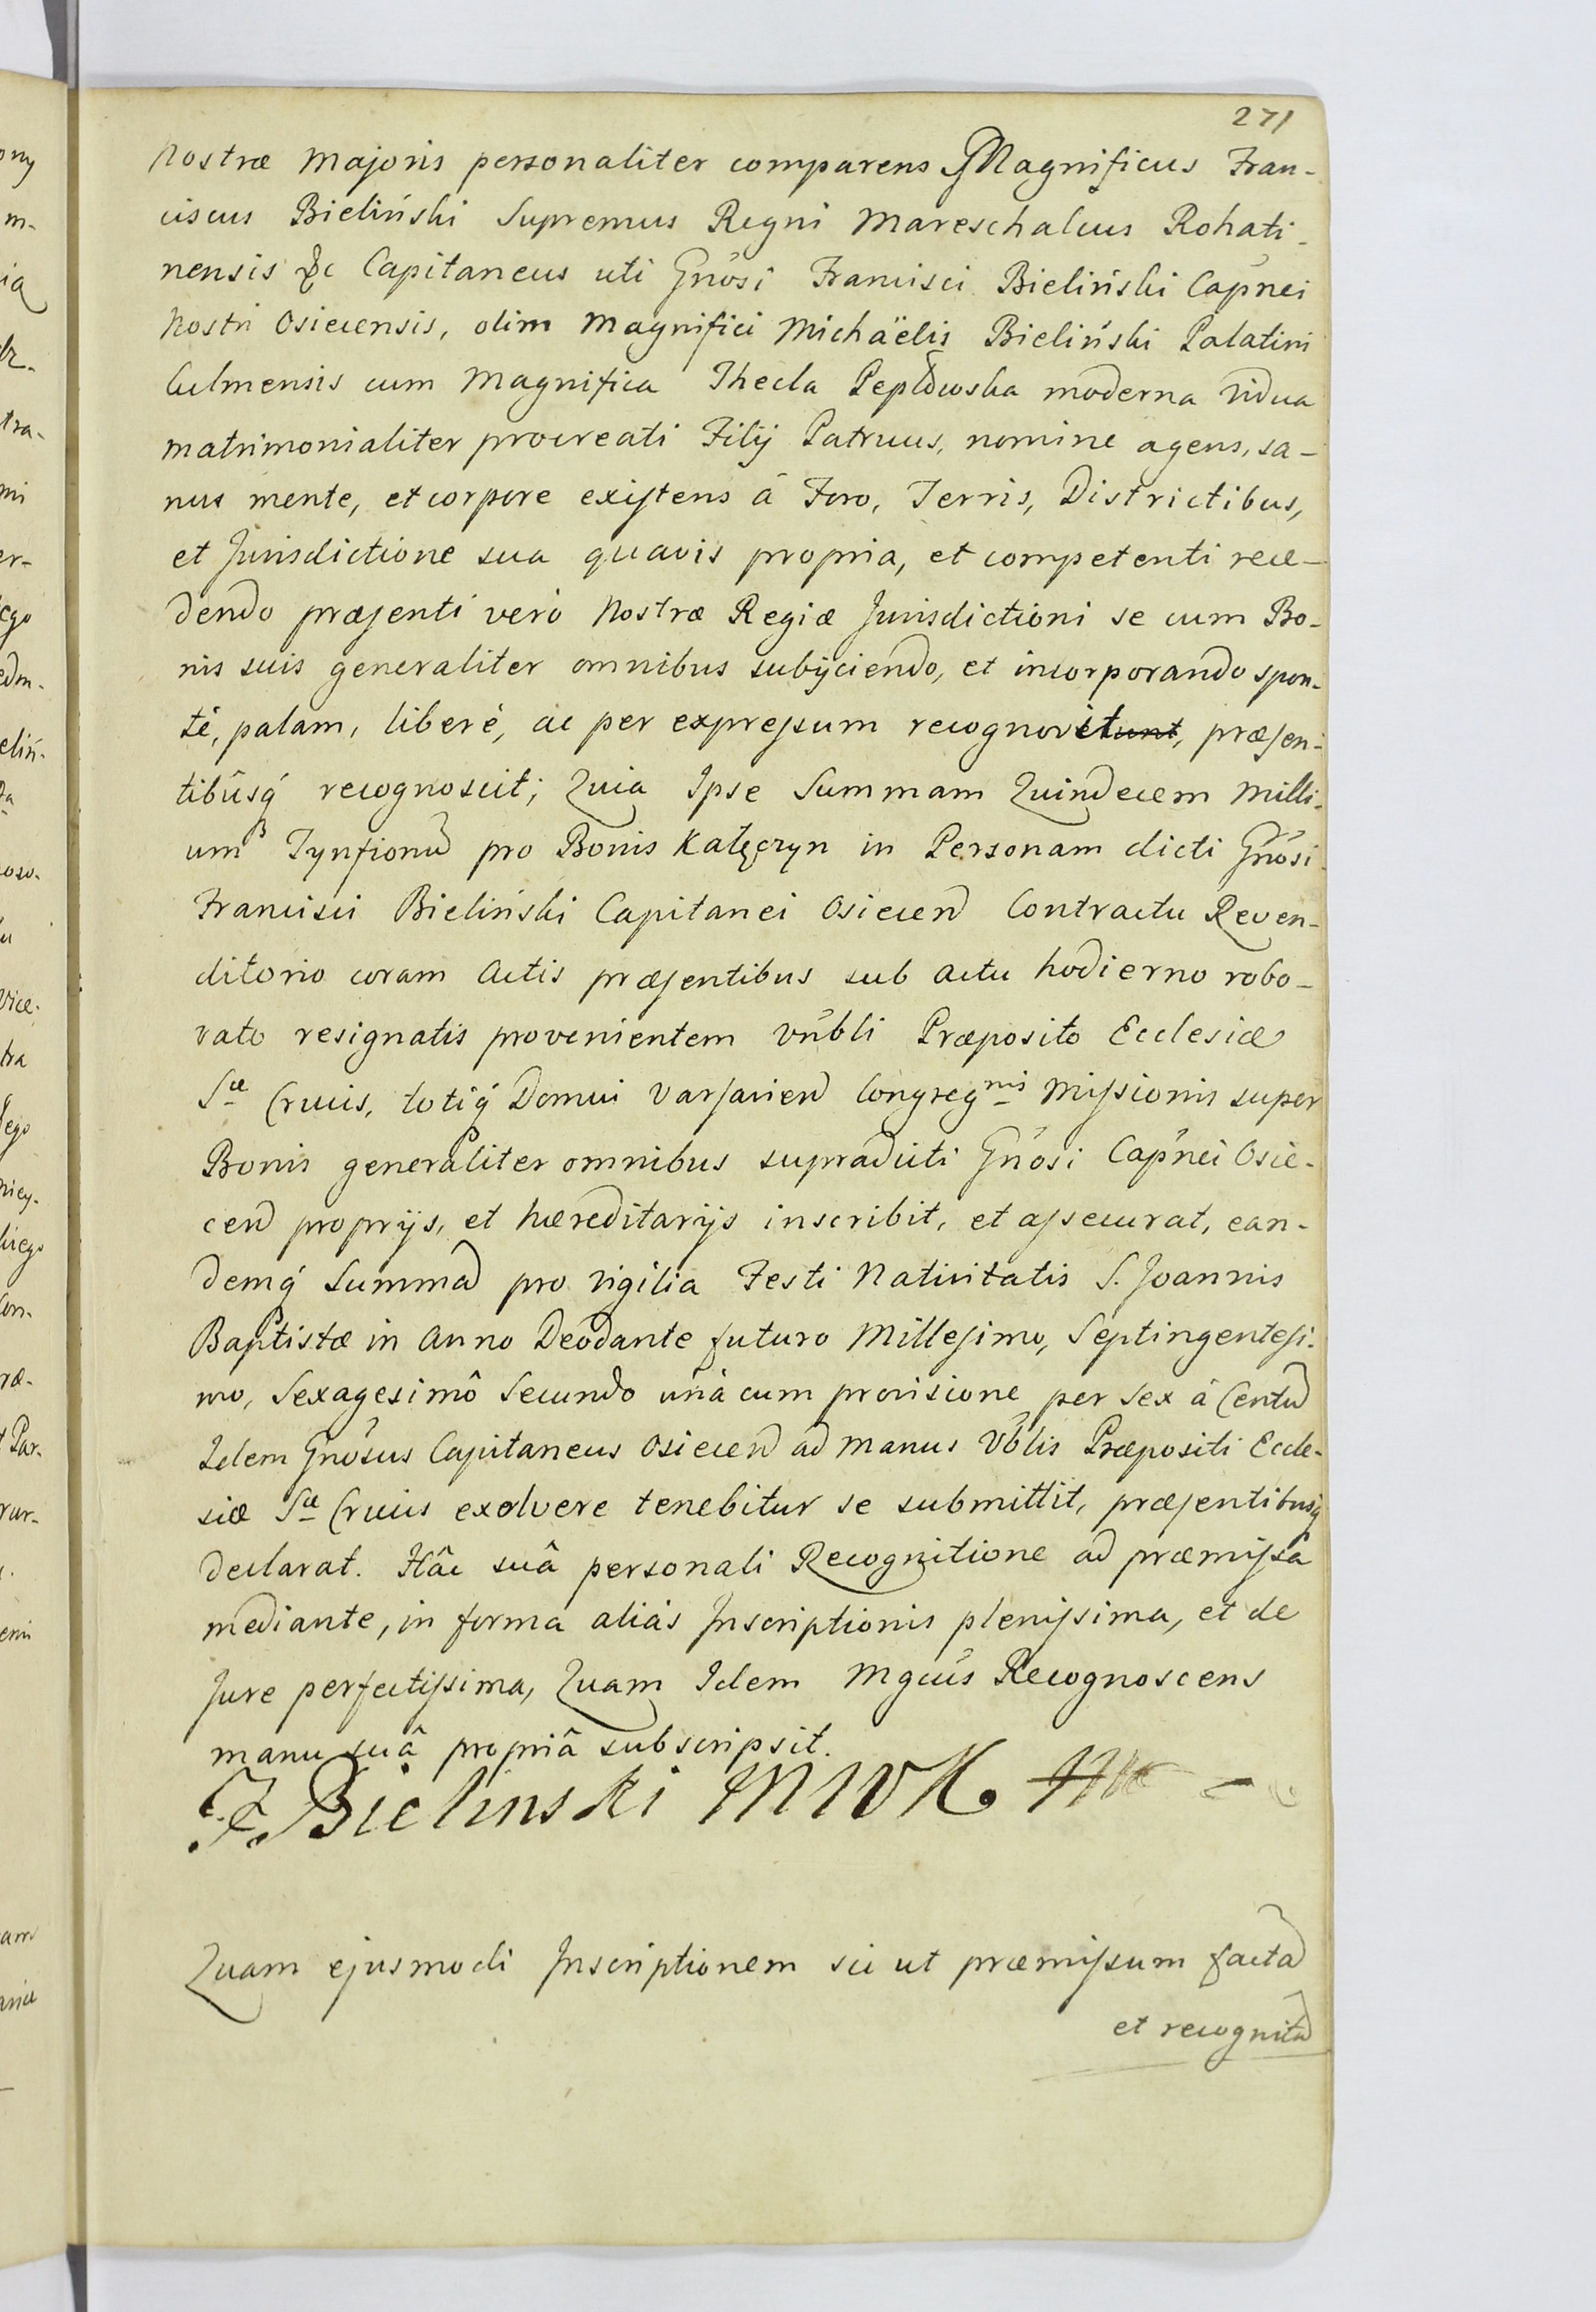 271
Nostræ Majoris personaliter comparens Magnificus Fran-
ciscus Bieliński Supremus Regni Mareschalcus Rohati-
nensis &c Capitaneus uti Gnosi Francisci Bieliński Capnei
Nostri Osiecensis, olim Magnifici Michäelis Bieliński Palatini
Culmensis cum Magnifica Thecla Pepłowska moderna Vidua
matrimonialiter procreati Filij Patruus, nomine agens, sa-
nus mente, et corpore existens á Foro, Terris, Districtibus,
et Jurisdictione sua quavis propria, et competenti rece-
dendo præsenti veró Nostræ Regiæ Jurisdictioni se cum Bo-
nis suis generaliter omnibus subijciendo, et incorporando spon-
té, palam, liberé, ac per expressum recognovit, præsen-
tibúsq́ recognoscit; Quia Ipse Summam Quindecem Milli-
um Tynfionũ pro Bonis Kałęczyn in Personam dicti Gnosi
Francisci Bieliński Capitanei Osiecen Contractu Reven-
ditorio coram Actis præsentibus sub actu hodierno robo-
rato resignatis provenientem Vnbli Præposito Ecclesiæ
Sæ Crucis, totiq́ Domui Varsavien Congregnis Missionis super
Bonis generaliter omnibus supradicti Gnosi Capnei Osie-
cen proprijs, et hæreditarijs inscribit, et assecurat, ean-
demq́ Summã pro Vigilia Festi Nativitatis S. Joannis
Baptistæ in Anno Deodante futuro Millesimo, Septingentesi-
mo, Sexagesimô Secundo uná cum provisione per Sex á Centũ
Idem Gnosus Capitaneus Osiecen ad manus Vblis Præpositi Eccle-
siæ Sæ Crucis exolvere tenebitur se submittit, præsentibusq́
declarat. Hâc suâ personali Recognitione ad præmissa
mediante, in forma aliás Inscriptionis plenissima, et de
Jure perfectissima, Quam Idem Mgcus Recognoscens
manu suâ propriâ subscripsit.
F. Bielinski MWK
Quam ejusmodi Inscriptionem sic ut præmissum factã
et recognitã